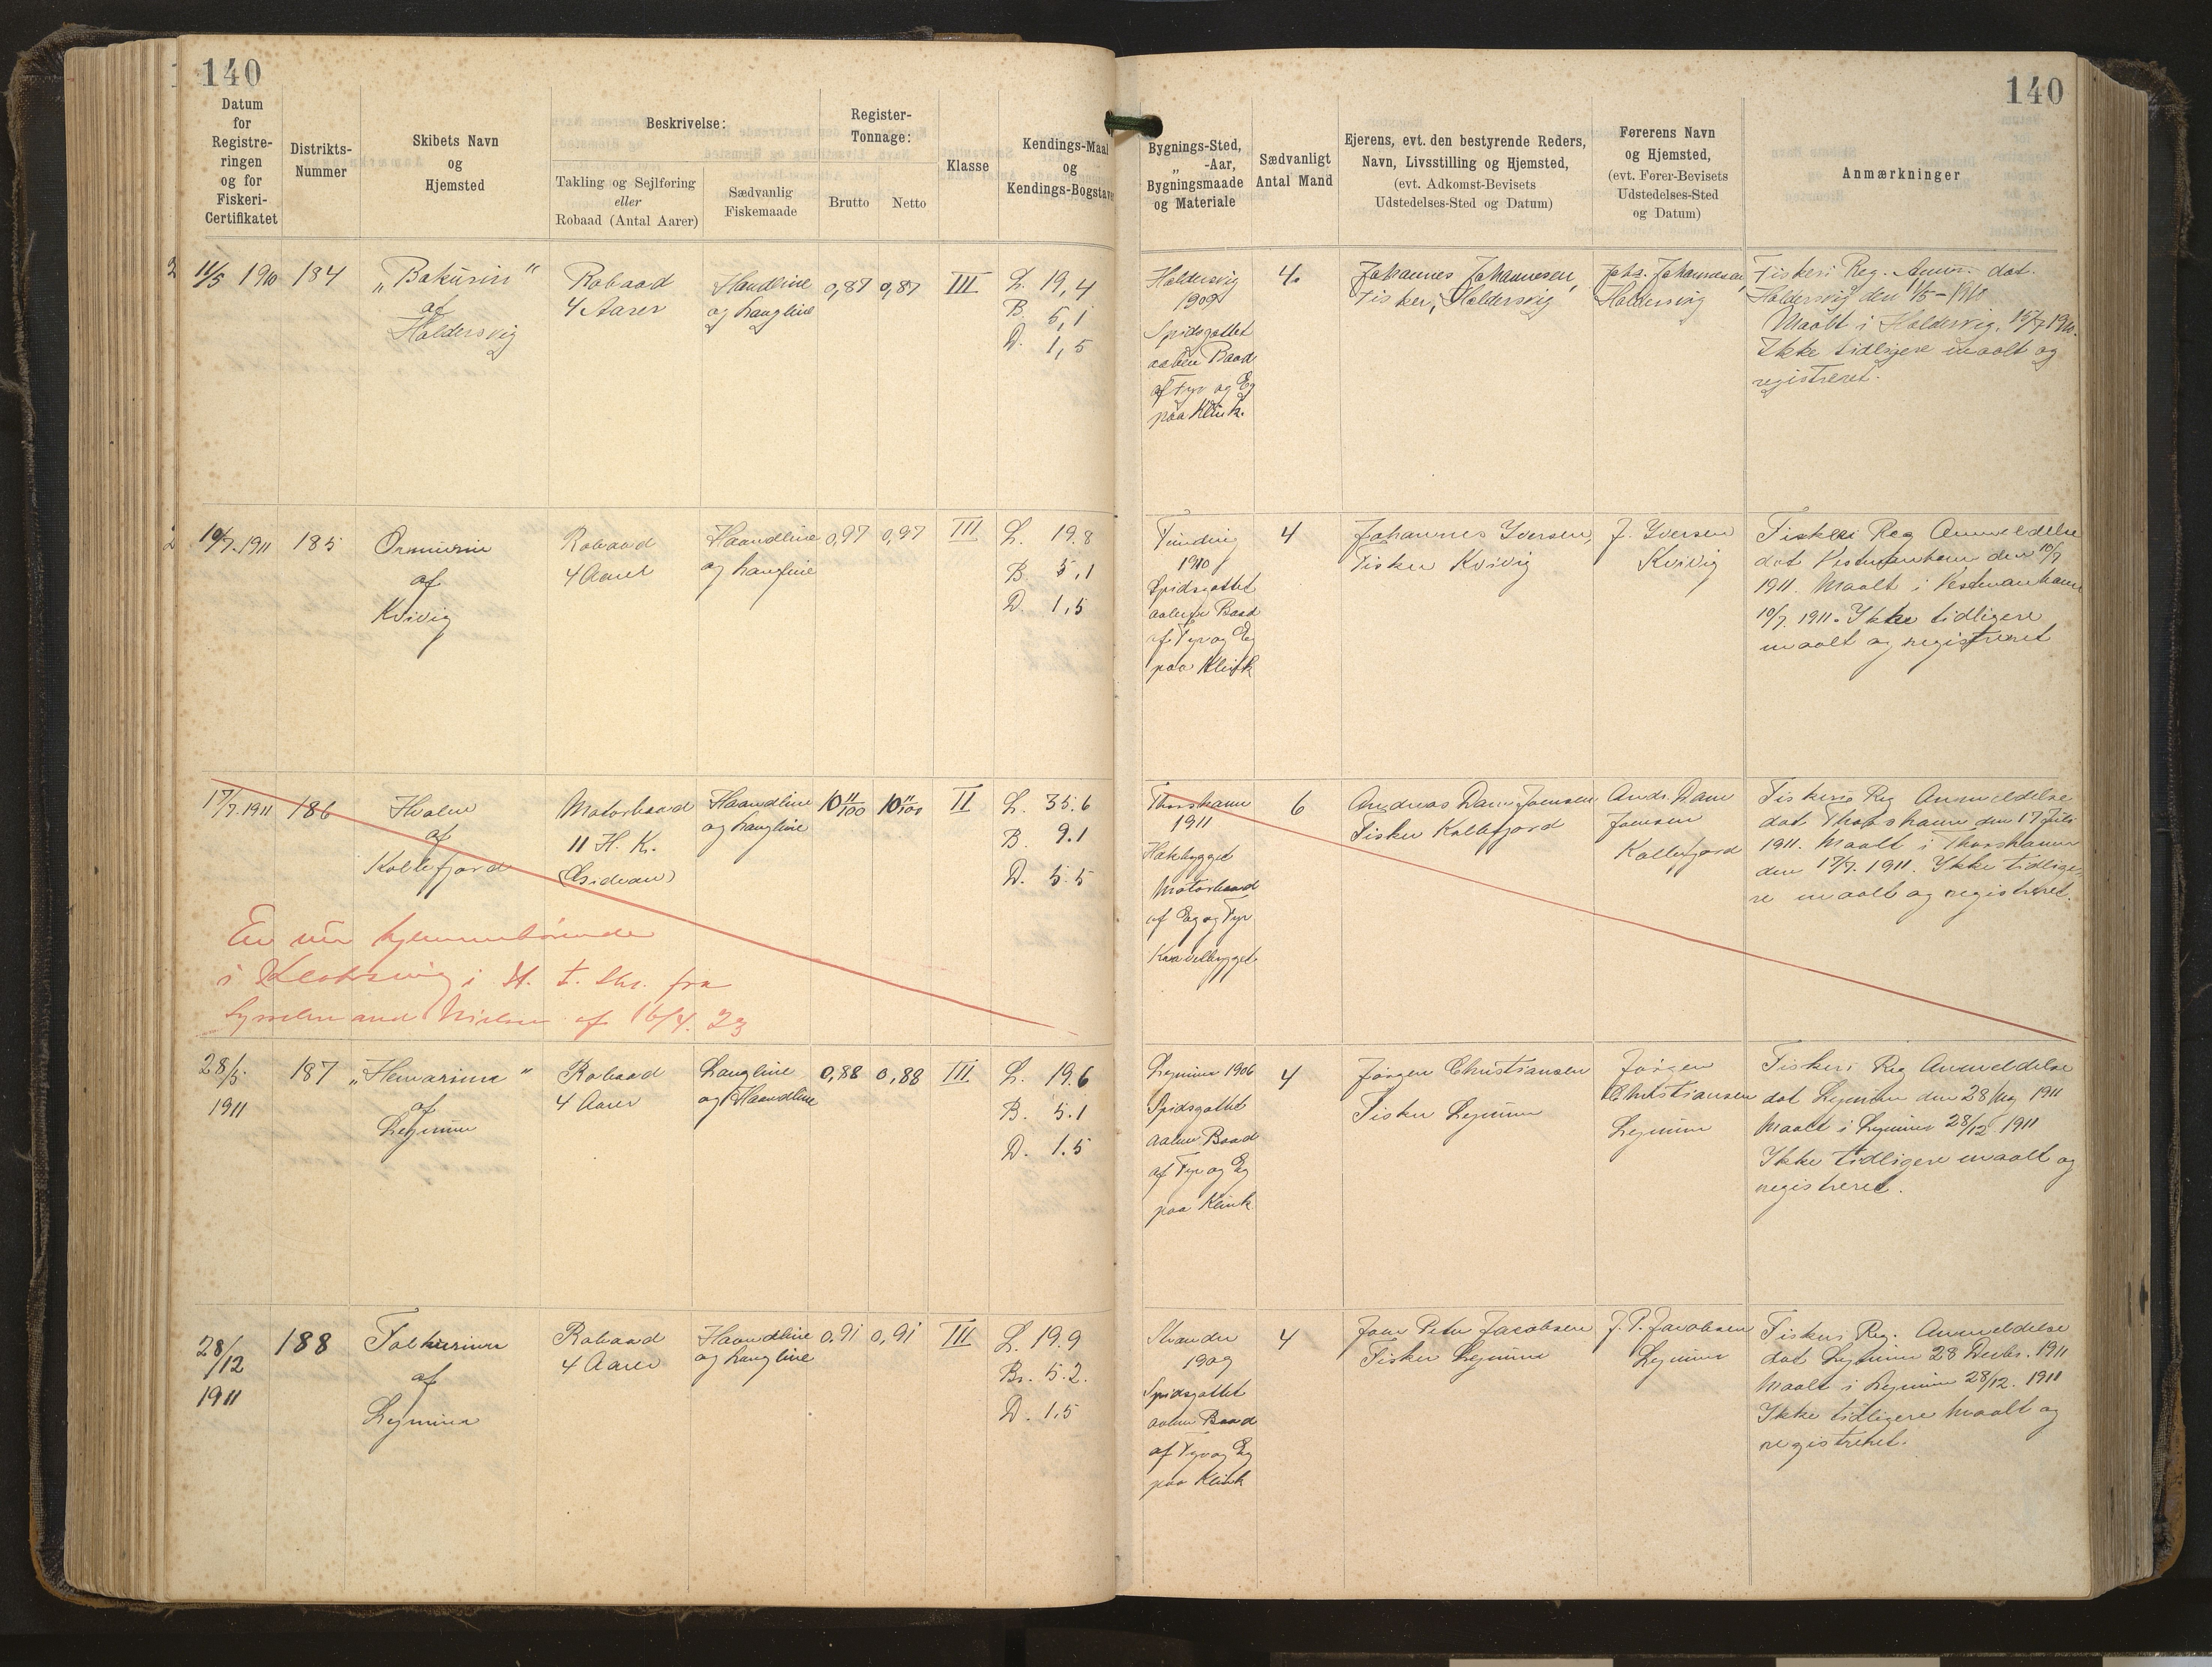 140
Datum
for
Registre-
ringen
og for
Fiskeri-
Certifikatet
Distrikts-
Nummer
Skibets Navn
og
Hjemsted
Beskrivelse:
Takling og Sejlføring
eller
Robaad (Antal Aarer)
Sædvanlig
Fiskemaade
Register-
Tonnage:
Brutto
Netto
Klasse
Kendings-Maal
og
Kendings-Bogstaver
11/5 1910
184
„Bakurin“
af
Haldersvig
Robaad
4 Aarer
Haandline
og Langline
0,87
0,87
III
L. 19,4
B. 5,1
D. 1,5
10/7. 1911
185
af
Kvivig
Robaad
4 Aarer
Haandline
og Langline
0,97
0,97
III
L. 19.8
B 5,1
D. 1,5
17/7. 1911
186
Hvalen
af
Kollefjord
Motorbaad
11 H. K.
Haandline
og Langline
10 11/100
10 11/100
II
L. 35.6
B. 9.1
D. 5.5
En nu hjemmehørende
i Klaksvig i H. t. Skr. fra
Sysselmand Nielsen af 16/4. 23
28/5.
1911
187
af
Lejnum
Robaad
4 Aarer
Langline
og Haandline
0,88
0,88
III
L. 19.6
B. 5.1
D. 1.5
28/12
1911
188
af
Robaad
4 Aarer
Haandline
og Langline
0,91
0,91
III
L. 19.9
Br. 5.2.
D. 1,5
140
Bygnings-Sted,
„ -Aar,
Bygningsmaade
og Materiale
Sædvanligt
Antal Mand
Ejerens, evt. den bestyrende Reders,
Navn, Livsstilling og Hjemsted,
(evt. Adkomst-Bevisets
Udstedelses-Sted og Datum)
Førerens Navn
og Hjemsted,
(evt. Fører-Bevisets
Udstedelses-Sted
og Datum)
Anmærkninger
Haldersvig
1909
Spidsgattet
aaben Baad
af Fyr og Eg
paa Klink.
4.
Johannes Johannesen,
Fisker, Haldersvig
Johs. Johannesen,
Haldersvig
Fiskeri Reg. Anm. dat.
Haldersvig den 11/5 – 1910
Maalt i Haldersvig, 15/7 1910.
Ikke tidligere maalt og
registreret.
Funding
1910
Spidsgattet
aaben Baad
af Fyr og Eg
paa Klink
4
Johannes Iversen,
Fisker Kvivig
J. Iversen
Kvivig
Fiskeri Reg Anmeldelse
dat Vestmanhavn den 10/7
1911. Maalt i Vestmanhavn
10/7. 1911. Ikke tidligere
maalt og registreret
Thorshavn
1911
Hækbygget
Motorbaad
af Eg og Fyr
Kravelbygget
6
Andreas Dam Joensen
Fisker Kollefjord
Andr. Dam
Joensen
Kollefjord
Fiskeri Reg Anmeldelse
dat Thorshavn den 17 Juli
1911. Maalt i Thorshavn
den 17/7. 1911. Ikke tidlige-
re maalt og registreret.
Lejnum 1906
Spidsgattet
aaben Baad
af Fyr og Eg
paa Klink
4
Jørgen Christiansen
Fisker Lejnum
Jørgen
Christiansen
Lejnum
Fiskeri Reg Anmeldelse
dat Lejnum den 28 Maj 1911
Maalt i Lejnum 28/12 1911
Ikke tidligere maalt og
registreret.
Strander
1909
Spidsgattet
aaben Baad
af Fyr og Eg
paa Klink
4
Joen Peter Jacobsen
Fisker Lejnum
J. P. Jacobsen
Lejnum
Fiskeri Reg. Anmeldelse
dat Lejnum 28 Decbr. 1911
Maalt i Lejnum 28/12. 1911
Ikke tidligere maalt og
registreret.